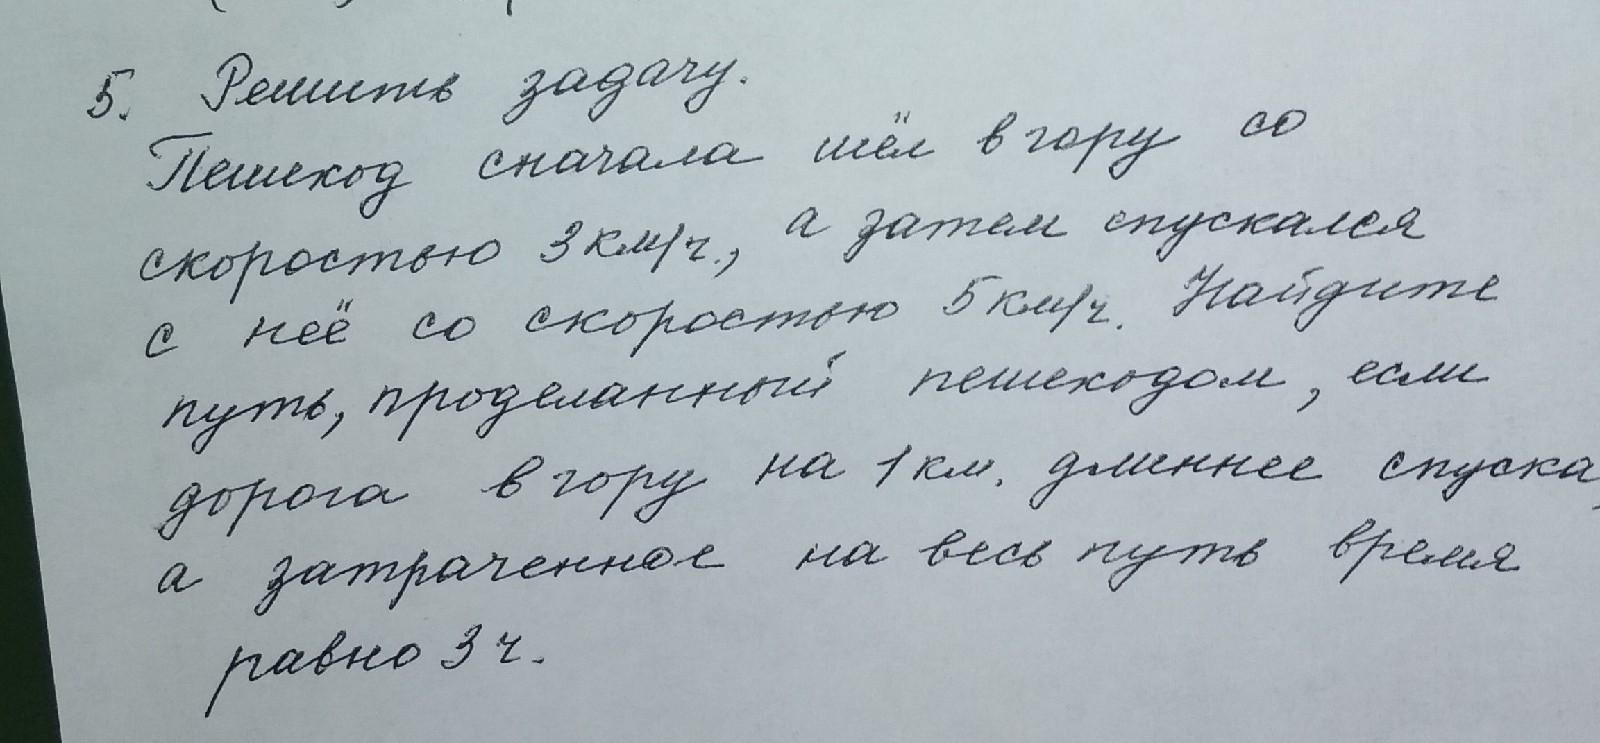 5. Решить задачу.
Пешеход сначала шёл в гору со
скоростью 3 км/ч., а затем спускался
с неё со скоростью 5 км/ч. Найдите
путь, проделанный пешеходом, если
дорога в гору на 1 км. длиннее спуска,
а затраченное на весь путь время
равно 3 ч.